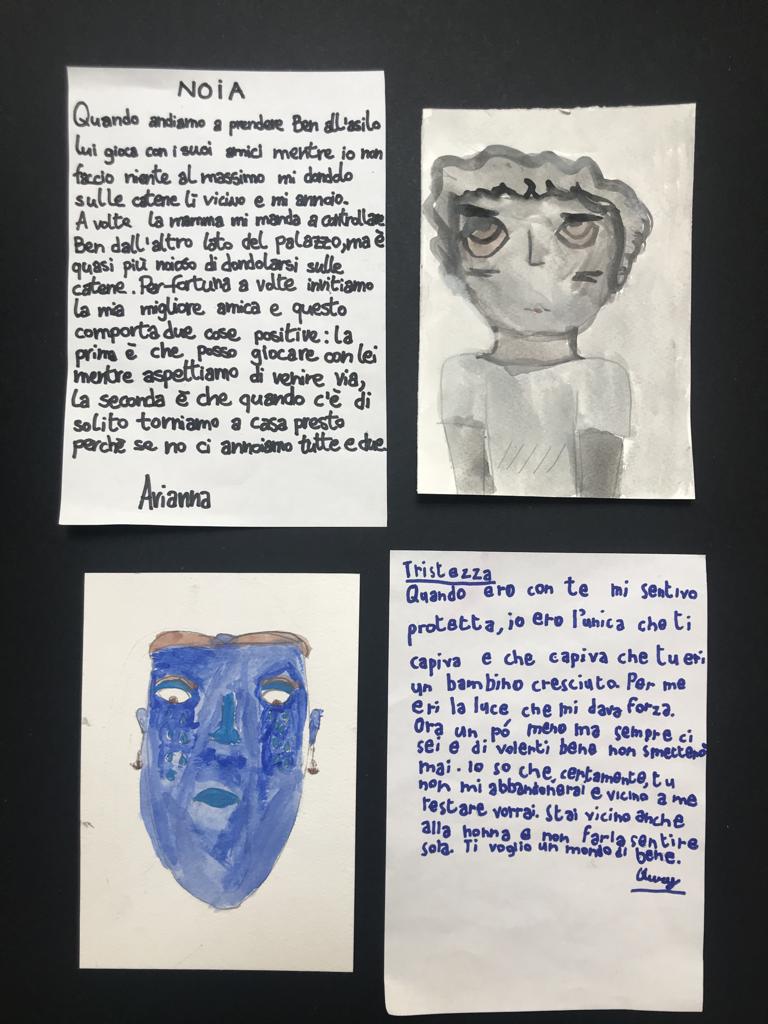 NOIA
Quando andiamo a prendere Ben all'asilo
lui gioca con i suoi amici mentre io non
faccio niente al massimo mi dondolo
sulle catene li vicino e mi annoio.
A volte la mamma mi manda a controllare
Ben dall'altro lato del palazzo, ma è
quasi più noioso di dondolarsi sulle
catene. Per fortuna a volte invitiamo
la mia migliore amica e questo
comporta due cose positive: la
prima è che posso giocare con lei
mentre aspettiamo di venire via,
la seconda è che quando c'è di
solito torniamo a casa presto
perchè se no ci annoiamo tutte e due.
Arianna
Tristezza
Quando ero con te mi sentivo
protetta, io ero l'unica che ti
capiva e che capiva che tu eri
un bambino cresciuto. Per me
eri la luce che mi dava forza.
Ora un pó meno ma sempre ci
sei e di volerti bene non smetterò
mai. Io so che, certamente, tu
non mi abbandonerai e vicino a me
restare vorrai. Stai vicino anche
alla nonna e non farla sentire
sola. Ti voglio un mondo di bene.